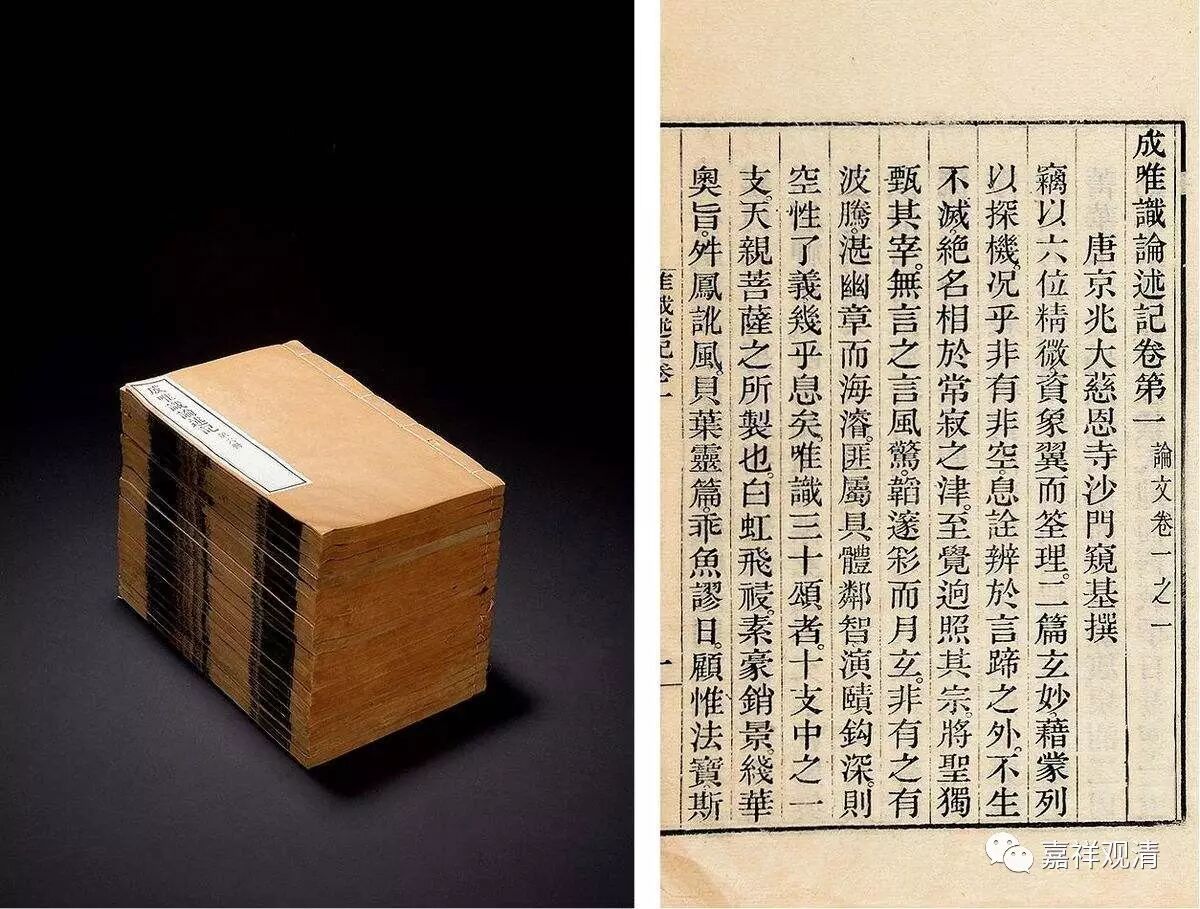 成唯識論述記
成唯識論述記卷第一 論文卷一之一
唐京兆大慈恩寺沙門窺基撰
竊以六位精微資象翼而筌理。二篇玄妙藉蒙列
以探機。況乎非有非空。息詮辨於言蹄之外。不生
不滅。絕名相於常寂之津。至覺迥照其宗。將聖獨
甄其宰。無言之言風驚。韜邃彩而月玄。非有之有
波騰。湛幽章而海濬。匪屬具體鄰智演賾鈎深。則
空性了義。幾乎息矣。唯識三十頌者。十支中之一
支。天親菩薩之所製也。白虹飛祲。素豪銷景。綫華
奧旨。舛鳳訛風。貝葉靈篇。乖魚謬日。顧惟法寶斯
唯識述記卷一
一
嘉祥观清